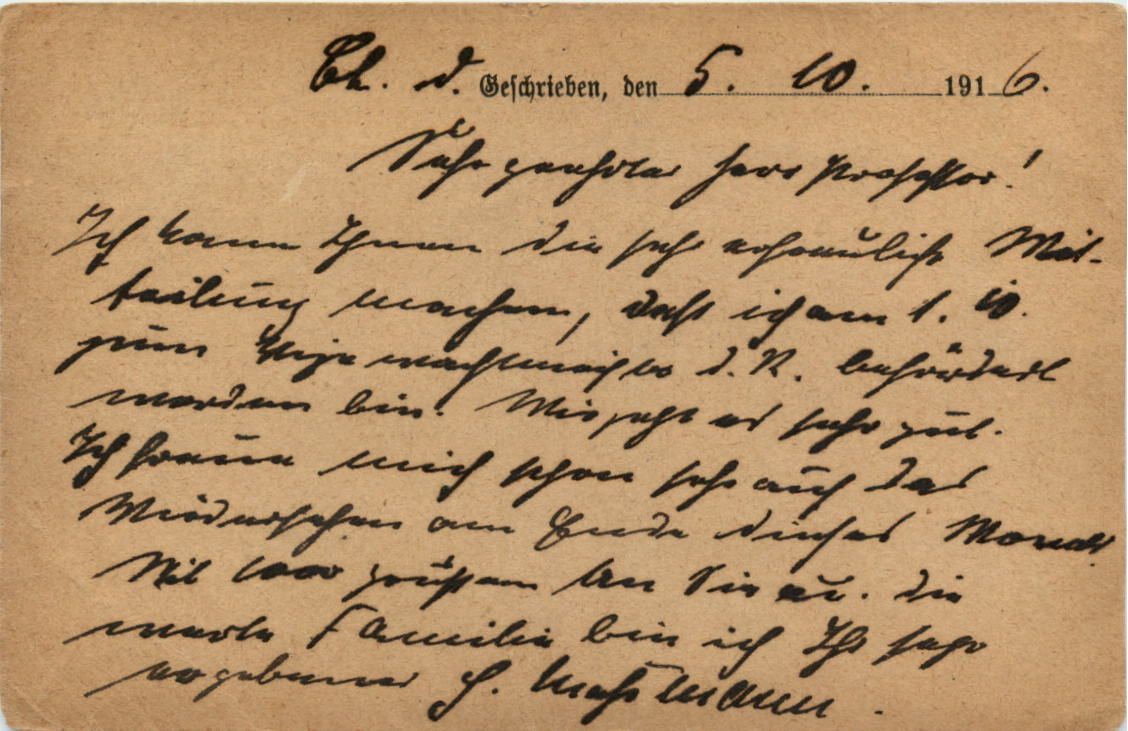 Ch. d. Geschrieben, den 5. 10. 1916.
Sehr geehrter Herr Professor!
Ich kann Ihnen die sehr erfreuliche Mit-
teilung machen, daß ich am 1. 10.
zum Vizewachtmeister d. R. befördert
worden bin. Mir geht es sehr gut.
Ich freue mich schon sehr auf das
Wiedersehen am Ende dieses Monats.
Mit 1000 Grüßen an Sie u. die
werte Familie bin ich Ihr sehr
ergebener H.